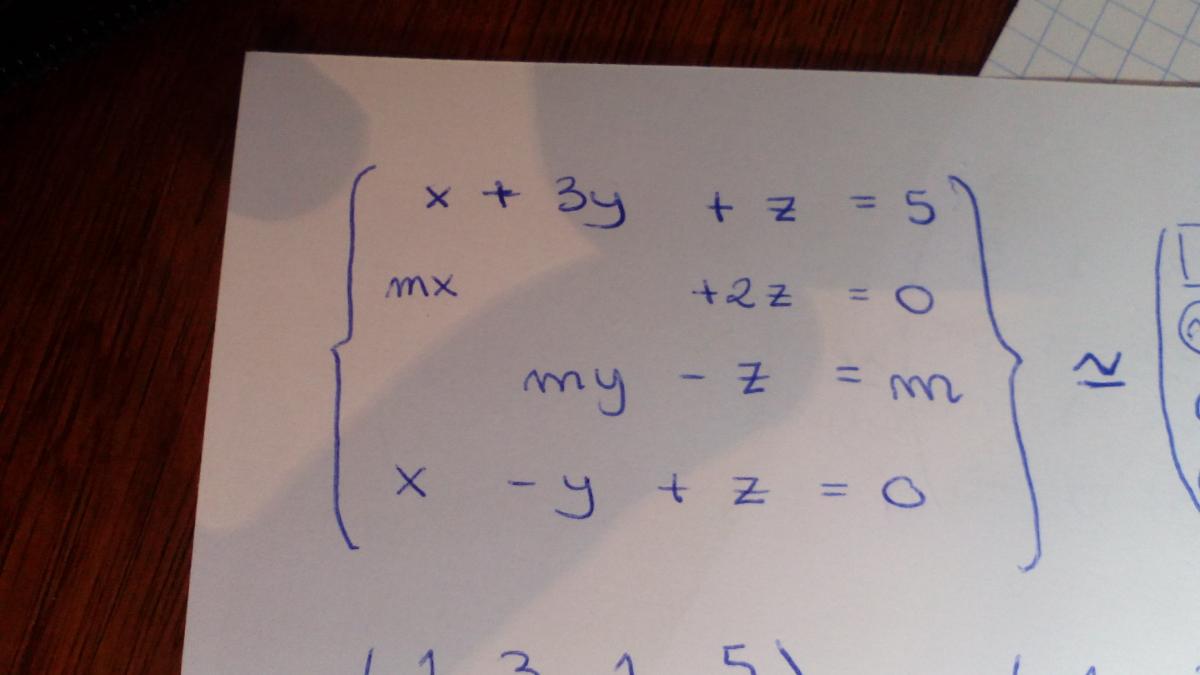 x + 3y + z = 5
mx +2z = 0
my - z = m
x - y + z = 0
≃
1 3 1 5